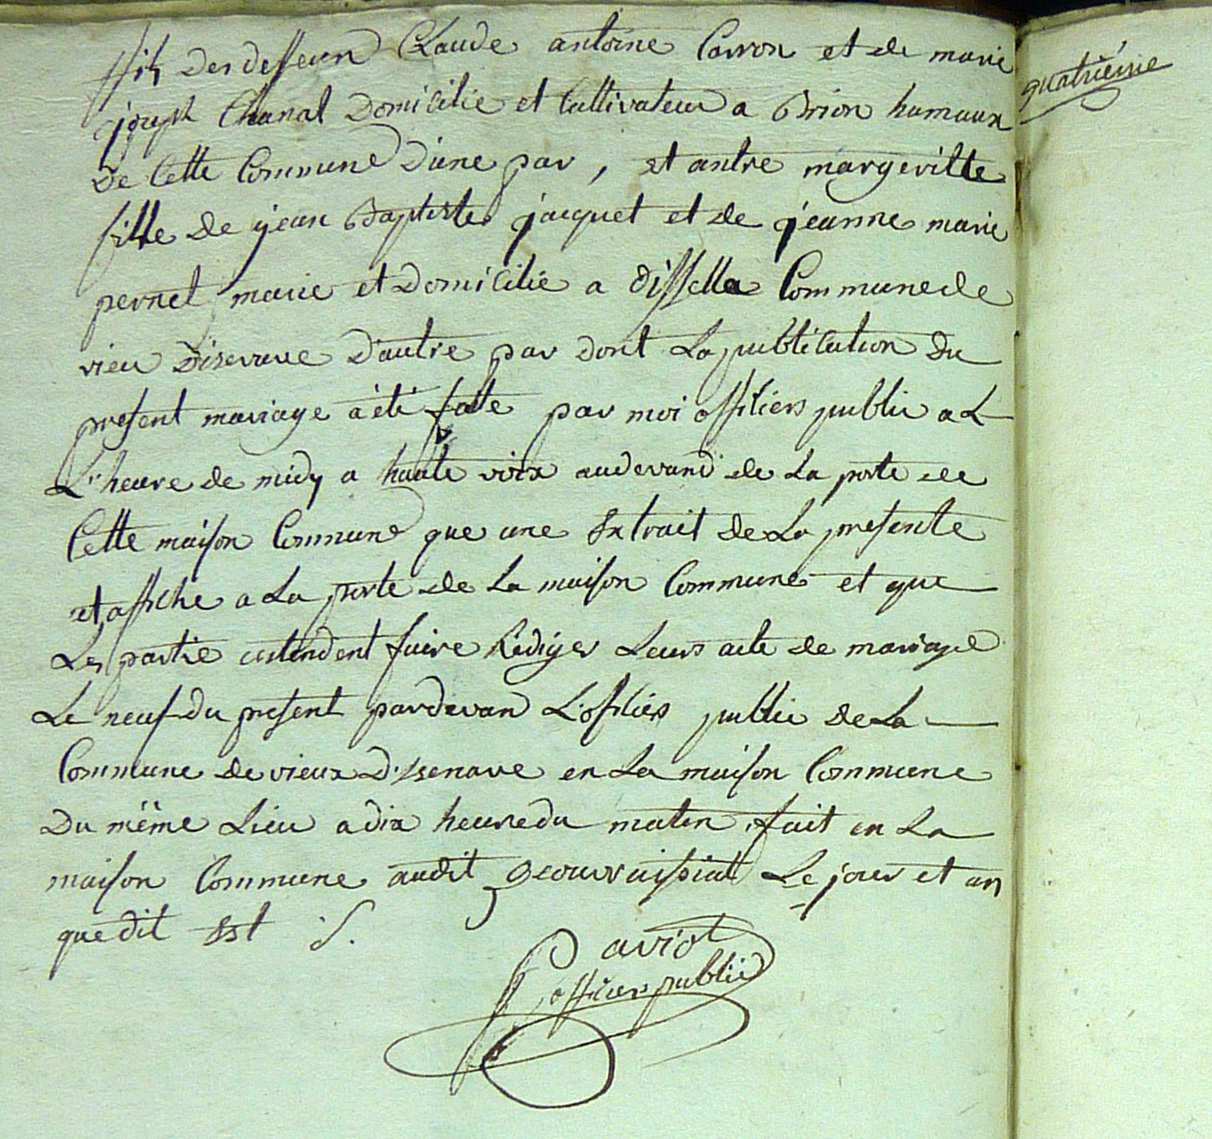 ffils des deffeun Claude antoine Carron et de marie
joseph Chanal Domicilie et Cultivateur a Brion hamaux
De Cette Commune D'une par, et autre margeritte
fille de jean Baptiste jacquet et de jeanne marie
pernet marie et Domicilie a Commune de
vieu D'isenave D'autre par dont La publication Du
present mariage a été faite par moi offitiers public a L
L'heure de midy a haute voix au devand de La porte de
Cette maison Commune que une Extrait de La presente
et affiche a La porte de La maison Commune et que
Les partie entendent faire Rédiger Leurs acte de mariage
Le neuf du present pardevan L'ofitiers public de La
Commune de vieux D'isenave en La maison Commune
Du même Lieu a dix heure du maten, fait en La
maison Commune audit geouvraissiat Le jour et an
que dit Est
aviot
officiers public
quatriéme